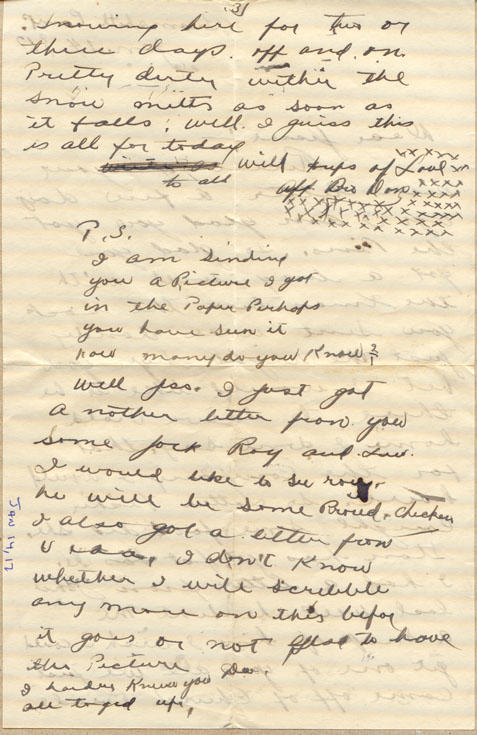 3
Snowing here for two or
three days. off and on.
Pretty dirty withe the
snow milts as soon as
it falls, well. I guess this
is all for today
will heps of Love xx
to all
aff Bro Don
P.S.
I am sinding
you a Picture I got
in the Paper Perhaps
you have seen it
how many do you Know?
Well Jss. I just got
a nother letter from you
some Jock Roy and
I would like to see roy.
he will be some Proud. chicken
I also got a letter from
I don't Know
whether I will scribble
any more on this befor
it goes or not glad to have
the Picture
I hardly Knew you
all toged up,
Jan 14, 17